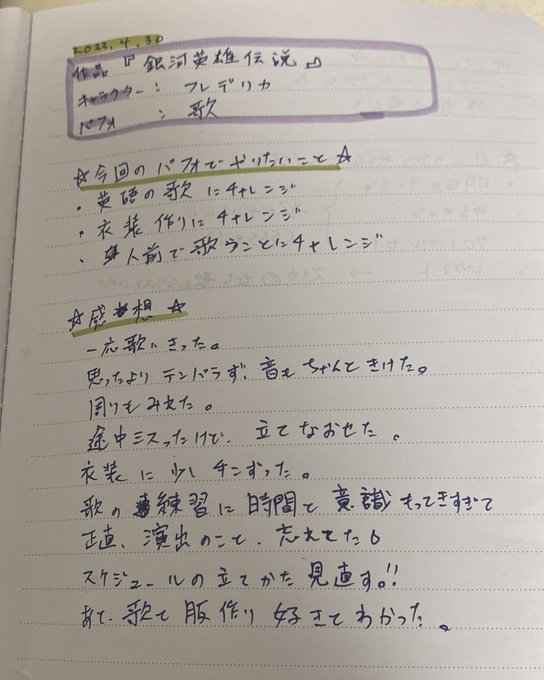 2023.4.30
作品『銀河英雄伝説』
キャラクター：フレデリカ
パフォ：歌
☆今回のパフォでやりたいこと☆
・英語の歌にチャレンジ
・衣装作りにチャレンジ
・人前で歌うことにチャレンジ
☆感想☆
一応歌いきった。
思ったよりテンパらず、音もちゃんときけた。
周りもみえた。
途中ミスったけど、立てなおせた。
衣装に少し手こずった。
歌の練習に時間と意識もってきすぎて
正直、演出のこと、忘れてた。
スケジュールの立てかた見直す!!
あと、歌と服作り好きてわかった。